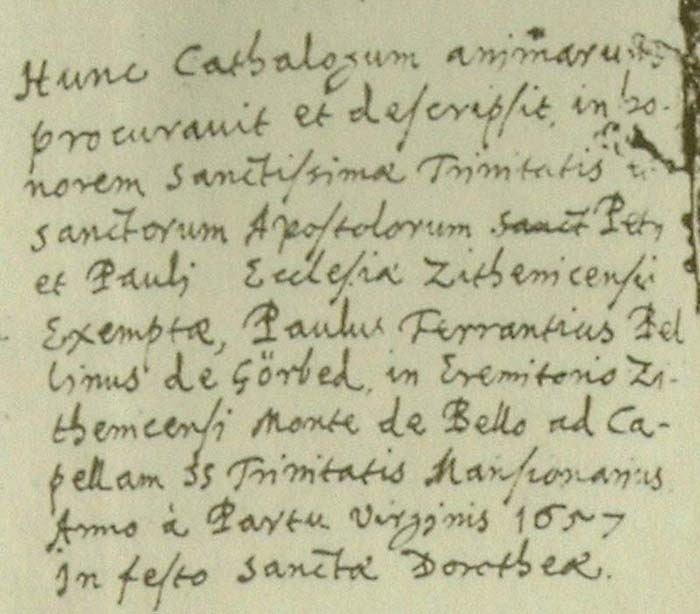 Hunc Cathalogum animarum
procurauit et descripsit, in ho-
norem sanctissimæ Trinitatis
sanctorum Apostolorum sanct Petri
et Pauli Ecclesiæ Zithenicensi
Exemptæ, Paulus Ferrantius Pel
linus de Görbed, in Eremitorio Zi-
themcensi Monte de Bello ad Ca-
pellam SS Trinitatis Mansionarius
Anno à Partu Virginis 1657
In festo sanctæ Dorotheæ.